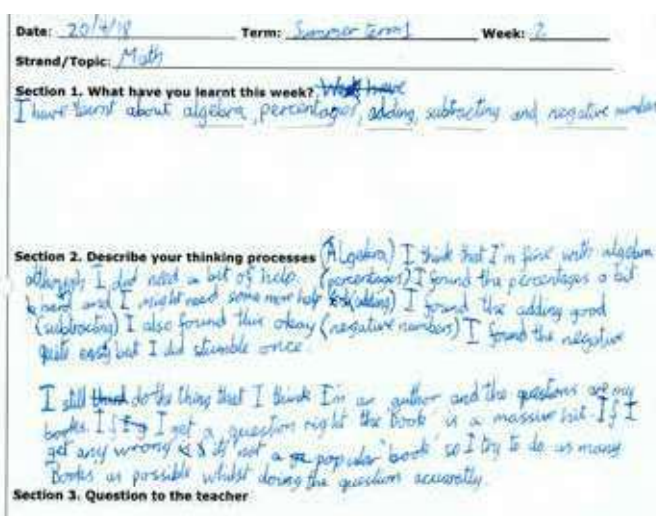 Date: 20/4/18 Term: Summer term 1 Week: 2
Strand/Topic: Math
Section 1. What have you learnt this week? What have
I have learnt about algebra, percentages, adding, subtracting and negative number
Section 2. Describe your thinking processes (Algebra) I think that I'm fine with algebra
although I did need a bit of help. (percentages) I found the percentages a bit
hard and I might need some more help (adding) I found the adding good
(subtracting) I also found this okay (negative numbers) I found the negative
quite easy but I did stumble once.
I still do the thing that I think I'm an author and the questions are my
books. If I get a question right the 'book' is a massive hit. If I
get any wrong it's not a popular 'book' so I try to do as many
Books as possible whilst doing the question accuratly.
Section 3. Question to the teacher